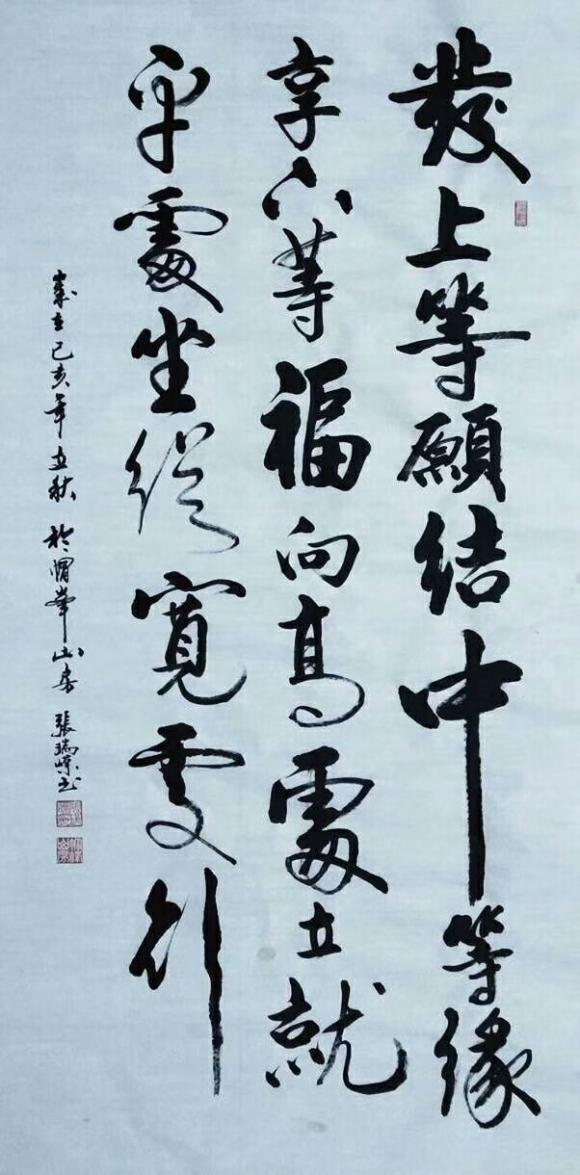 發上等願結中等緣
享下等福向高處立就
平處坐從寬處行
歲在己亥年立秋於渭峯山房 張瑞書